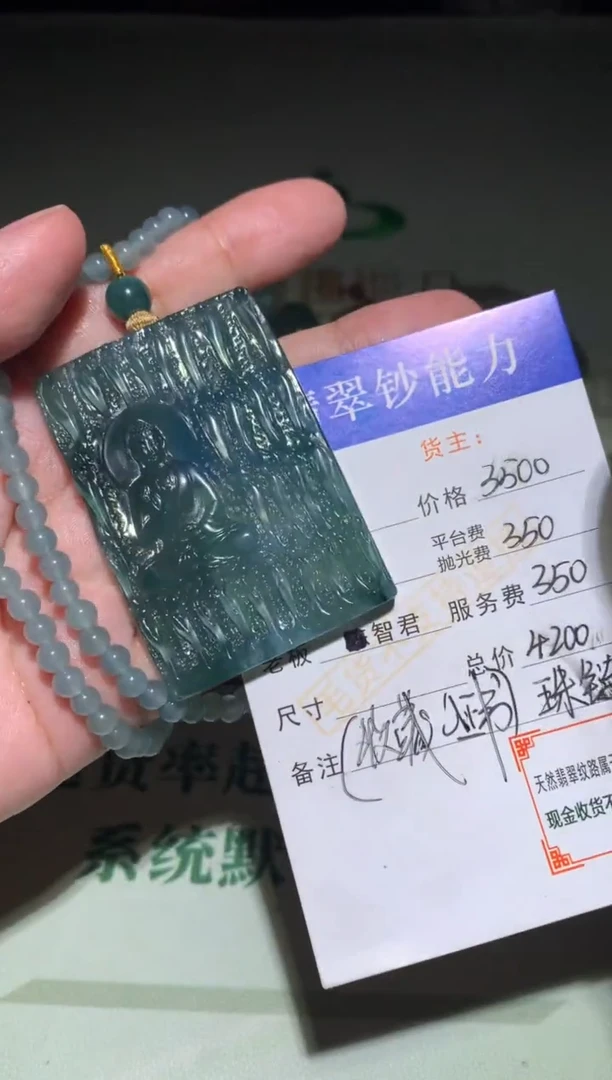 翠钞能力
货主:
价格 3500
平台费
抛光费 350
服务费 350
老板 智君
总价 4200
尺寸
备注 (收藏证书) 珠链
天然翡翠纹路属
现金收货不
系统默